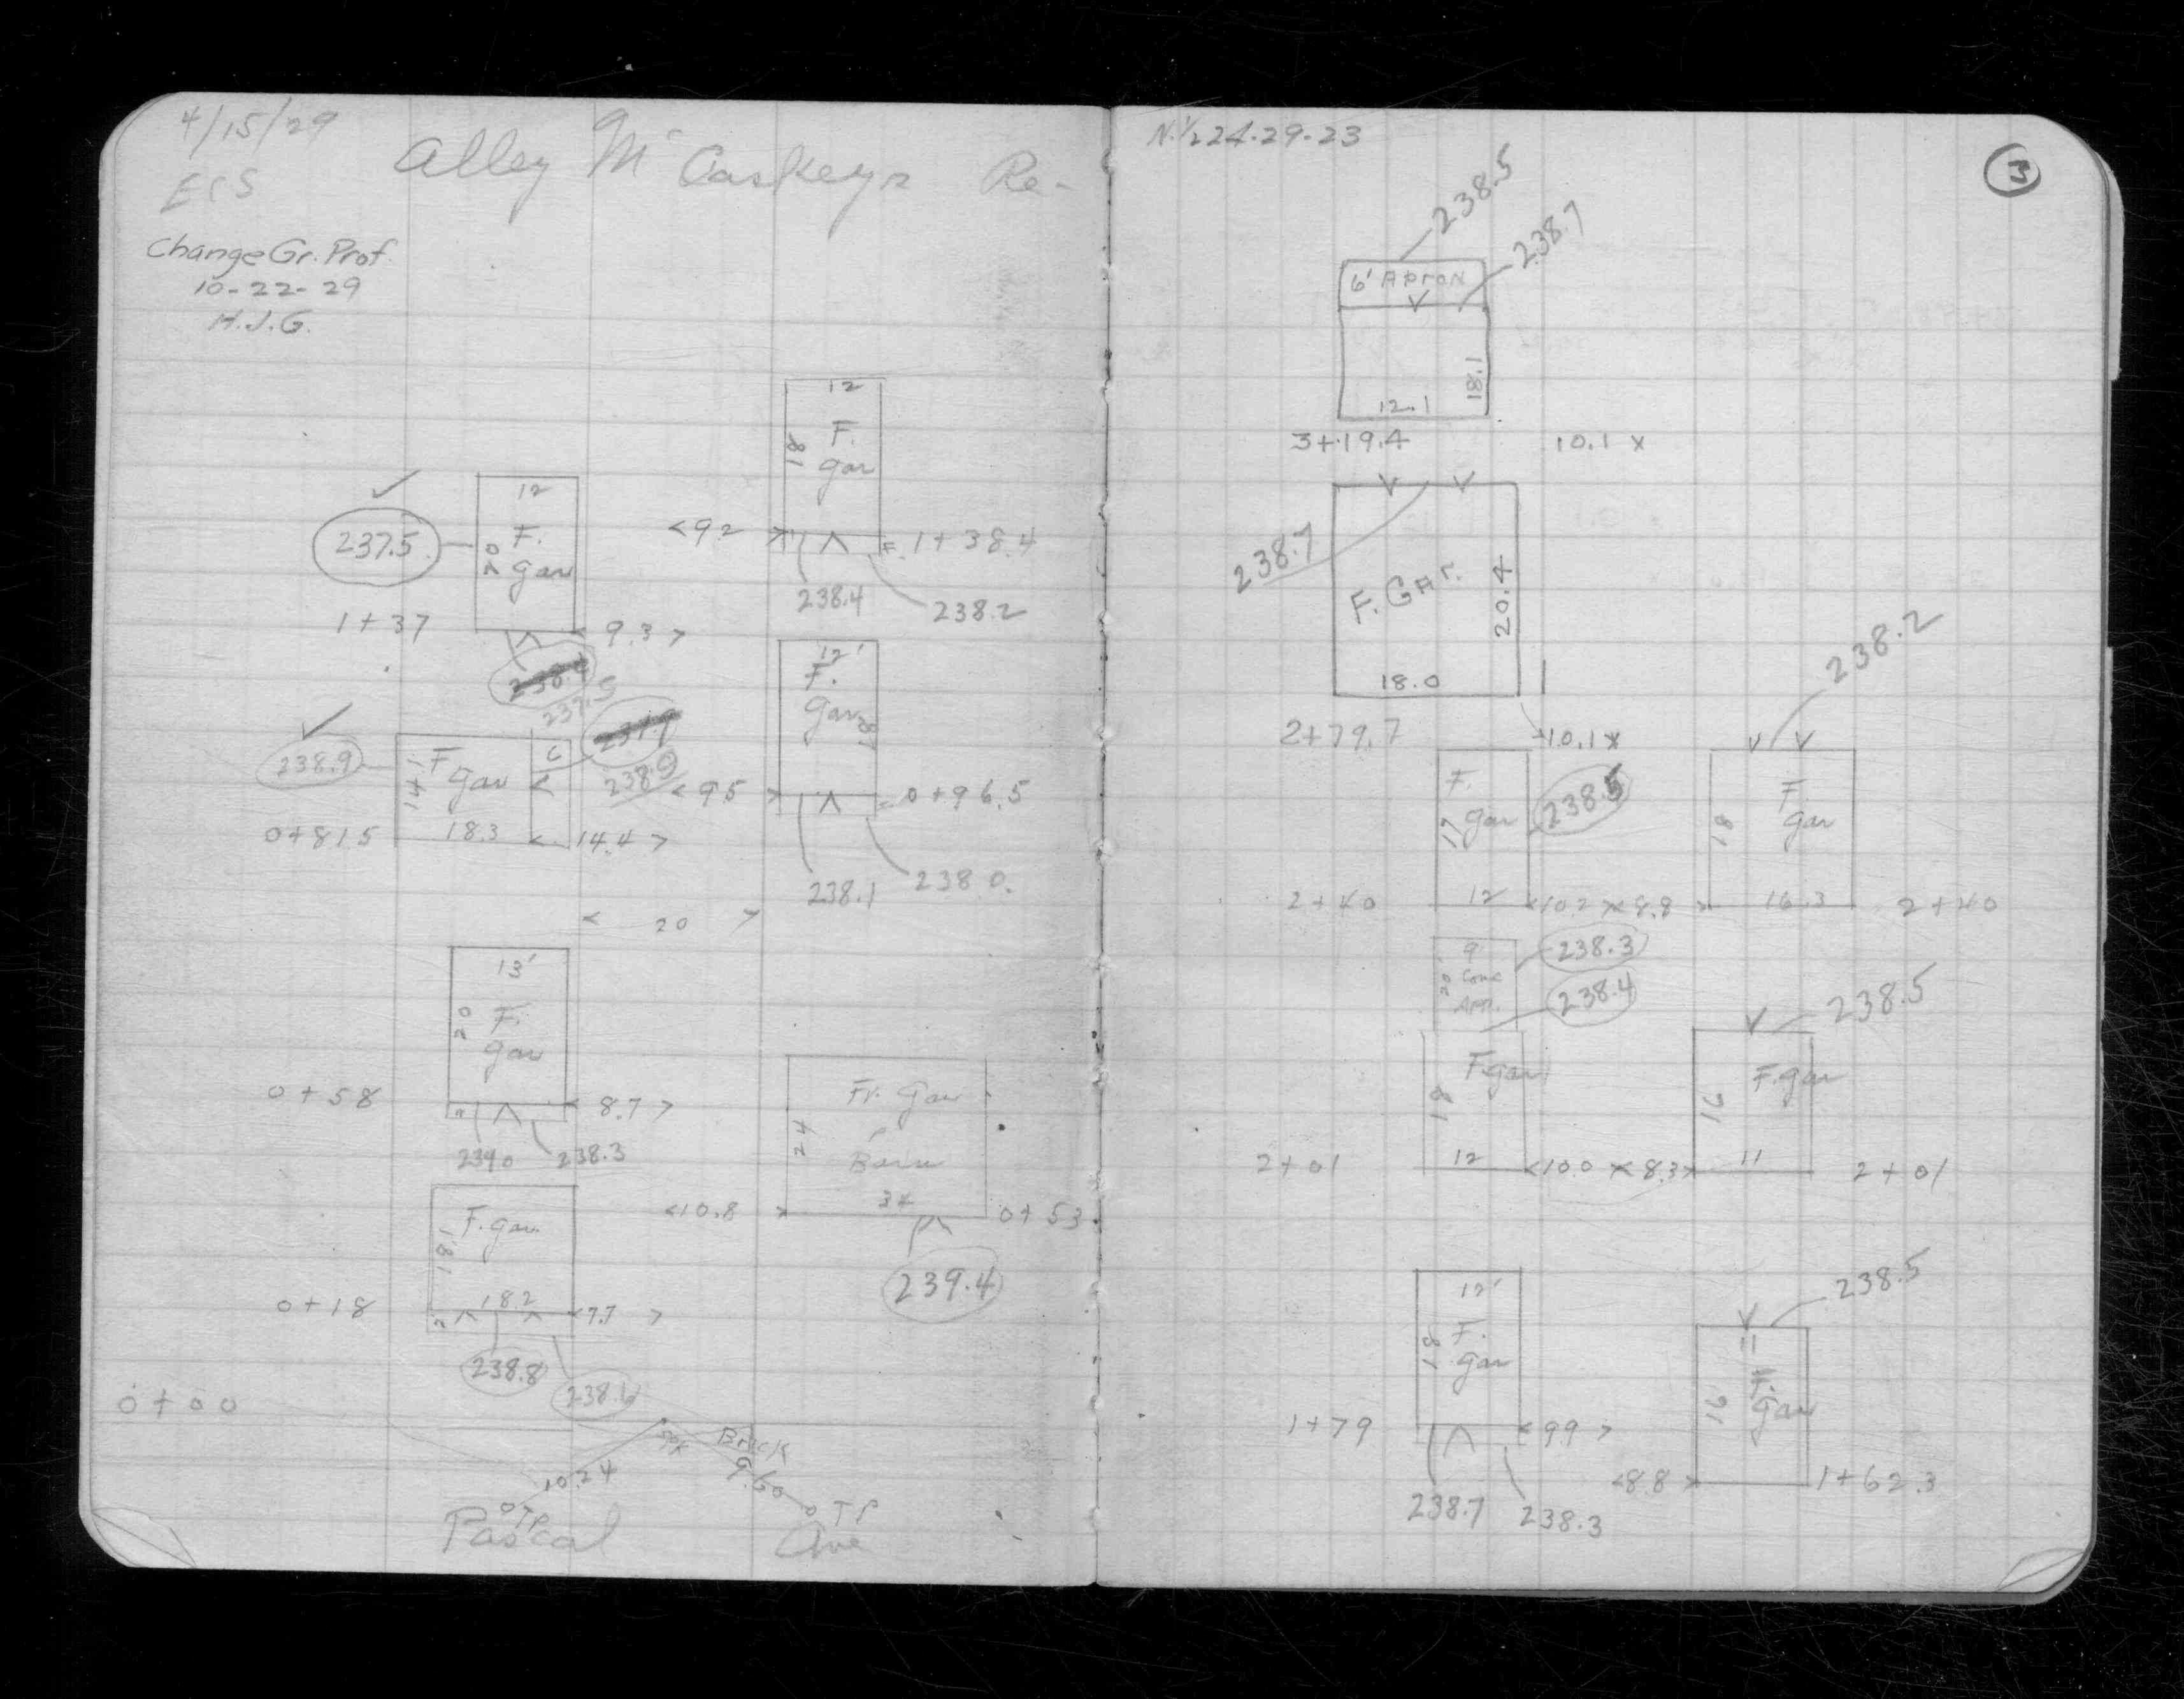 4/15/29
Alley McCaskeys Re-
Change Gr. Prof.
10-22-29
H.J.G.
12
18
F.
gar
<92>
1+38.4
238.4
238.2
12
237.5
20
F.
gar
1+37
9.3>
237.5
12'
F.
gar
238.9
14.1
F
gar
18.3
238.9
<95>
0+96.5
0+815
<14.4>
238.1
238 0.
< 20 >
13'
20
F.
gar
0+58
8.7>
238.3
Fr. Gar
Barn
24
34
<10.8>
0+53
239.4
F. gar
18.1
18.2
0+18
<7.7>
238.8
0+00
Brick
10.24
9.60
TP
TP
Pascal Ave
N.½ 24-29-23
3
238.5
238.7
6' Apron
18.1
12.1
3+19.4
10.1 x
238.7
F. Gar.
20.4
18.0
2+79.7
10.1 x
238.2
F.
gar
17
12
238.5
F.
gar
18
16.3
2+40
<10.2><8.8>
2+40
9'
20
Conc
Apr.
238.3
238.4
F. gar
18
12
238.5
F. gar
16
11
2+01
<10.0><8.3>
2+01
12'
18
F.
gar
238.5
11
16
F.
gar
1+79
<99>
<8.8>
1+62.3
238.7
238.3